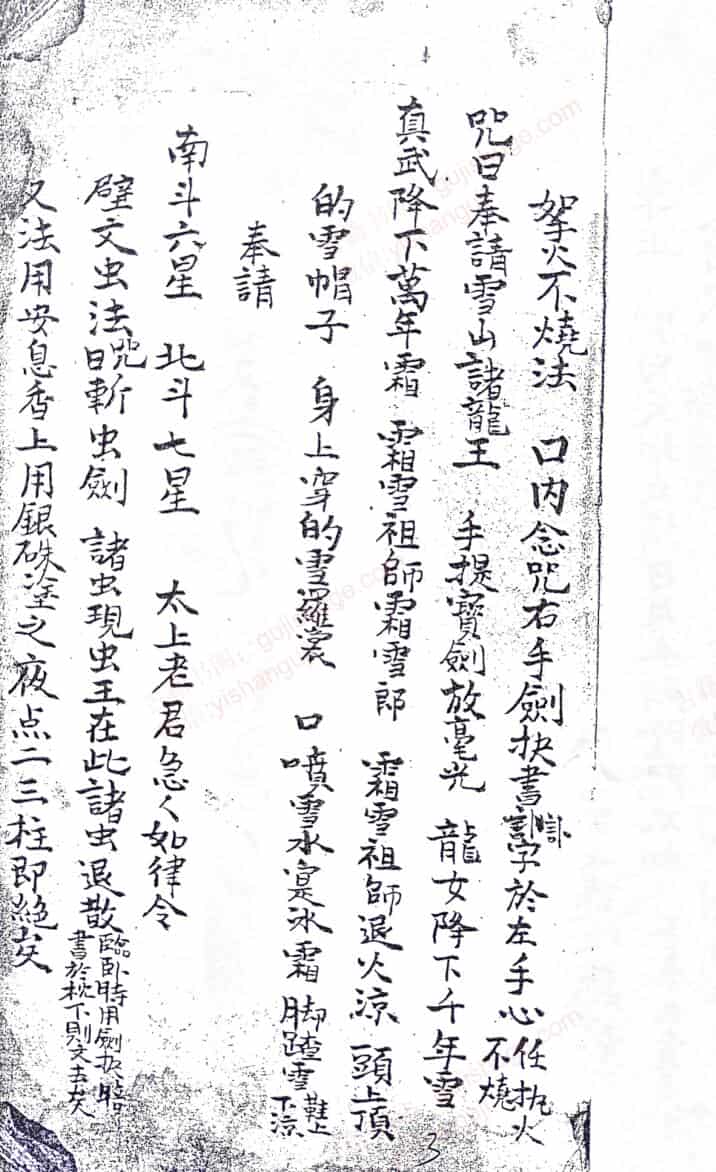 拏火不燒法 口內念咒右手劍抉書訃字於左手心任执火不燒
咒曰奉請雪山諸龍王 手提寶劍放毫光 龍女降下千年雪
真武降下萬年霜 霜雪祖師霜雪郎 霜雪祖師退火涼 頭上頂
的雪帽子 身上穿的雪羅裳 口噴雪水寔冰霜 脚踏雪鞋上下涼
奉請
南斗六星 北斗七星 太上老君急々如律令
壁文虫法咒曰斬虫劍 諸虫現虫王在此諸虫退散臨卧時用劍抉暗書於枕下則文去矣
又法用安息香上用銀硃塗之夜点二三柱即絶矣
3